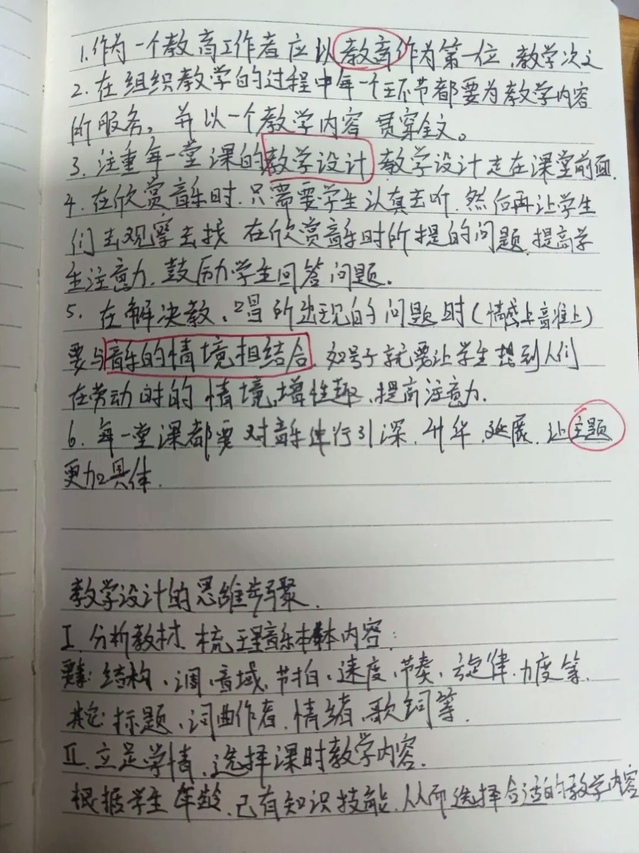 1.作为一个教育工作者应以教育作为第一位,教学次之
2.在组织教学的过程中每一个环节都要为教学内容
所服务。并以一个教学内容贯穿全文。
3.注重每一堂课的教学设计 教学设计走在课堂前面.
4.在欣赏音乐时.只需要学生认真去听.然后再让学生
们去观摩去找 在欣赏音乐时所提的问题.提高学
生注意力.鼓励学生回答问题.
5.在解决教、唱所出现的问题时(情感上音准上)
要与音乐的情境相结合.如号子就要让学生想到人们
在劳动时的情境增性趣.提高注意力.
6.每一堂课都要对音乐进行引深.升华.延展.让主题
更加具体.
教学设计的思维步骤.
I.分析教材.梳理音乐本体内容:
要素:结构、调、音域、节拍、速度、节奏、旋律.力度等.
其它:标题、词曲作者.情绪.歌词等.
II.立足学情.选择课时教学内容.
根据学生年龄.已有知识技能.从而选择合适的教学内容